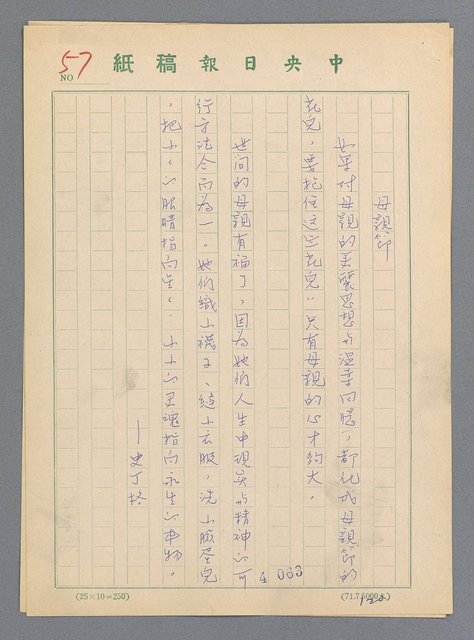 中央日報稿紙
NO 57
母親節
如果對母親的美麗思想与溫柔回憶，都化成母親節的
花兒，要抱住这些花兒，只有母親的心才夠大。
世间的母親有福了，因為她們人生中現实与精神的可
行方法合而為一。她們織小襪子、縫小衣服，洗小臉蛋兒
，把小々的眼睛指向星々，小小的灵魂指向永生的事物。
—史丁格
4 063
(25×10=250)
(71.7.5000本)